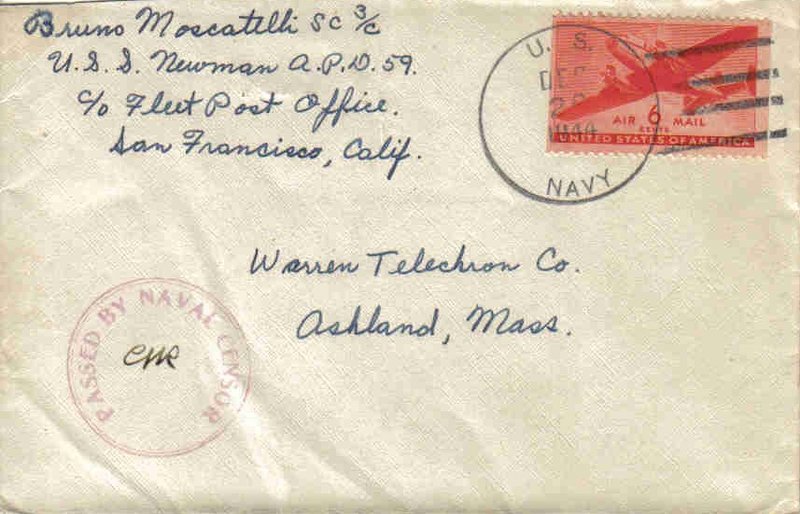 Bruno Moscatelli SC 3/c
U.S.S. Newman A.P.D. 59.
c/o Fleet Post Office.
San Francisco, Calif.
U. S.
DEC
1944
NAVY
AIR 6 MAIL
CENTS
UNITED STATES OF AMERICA
Warren Telechron Co.
Ashland, Mass.
PASSED BY NAVAL CENSOR